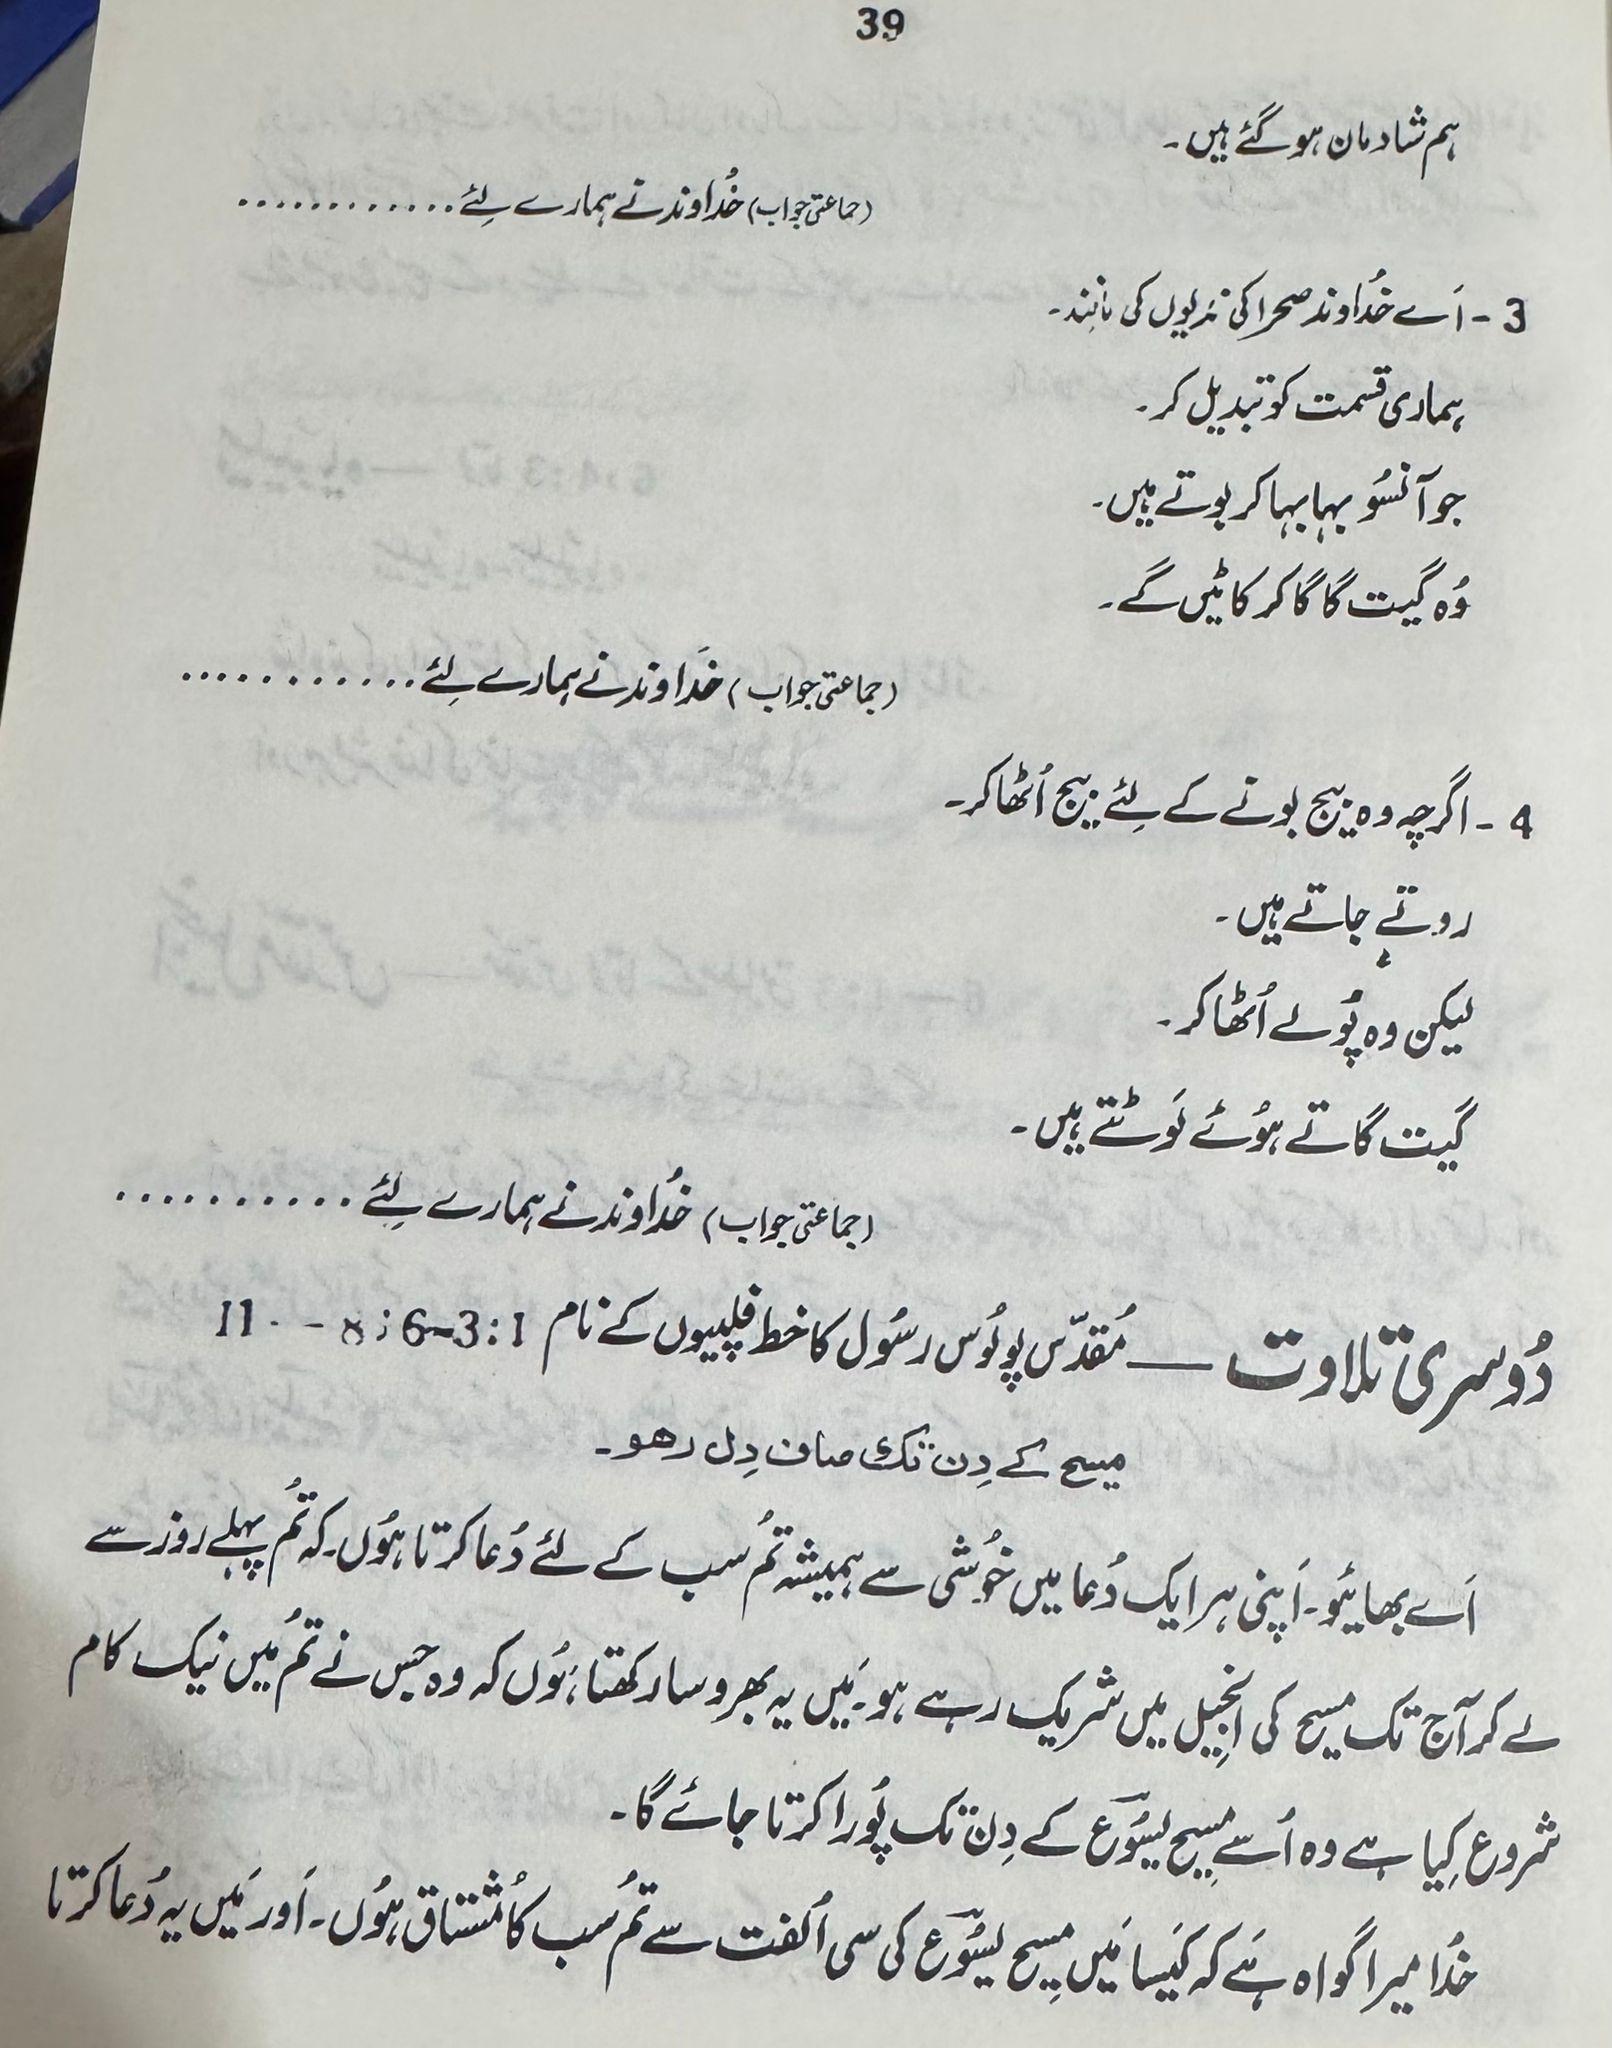 39
ہم شادمان ہو گئے ہیں۔
(جماعتی جواب) خُداوند نے ہمارے لِئے ............
3 - اَے خُداوند صحرا کی ندیوں کی مانِند۔
ہماری قسمت کو تبدیل کر۔
جو آنسُو بہا بہا کر بوتے ہیں۔
وُہ گیت گا گا کر کاٹیں گے۔
(جماعتی جواب) خُداوند نے ہمارے لِئے ............
4 - اگرچہ وہ بیج بونے کے لِئے بیج اُٹھا کر۔
روتے جاتے ہیں۔
لیکن وہ پُولے اُٹھا کر۔
گیت گاتے ہُوئے لَوٹتے ہیں۔
(جماعتی جواب) خُداوند نے ہمارے لِئے ...........
دُوسری تلاوت — مُقدّس پولُوس رسُول کا خط فلپیوں کے نام 1:3-6؛ 8 - 11
مسیح کے دِن تک صاف دِل رھو۔
اَے بھائیو۔ اَپنی ہر ایک دُعا میں خُوشی سے ہمیشہ تُم سب کے لئے دُعا کرتا ہُوں۔ کہ تُم پہلے روز سے
لے کر آج تک مسیح کی اِنجیل میں شریک رہے ہو۔ مَیں یہ بھروسا رکھتا ہُوں کہ وہ جِس نے تُم میں نیک کام
شروع کِیا ہے وہ اُسے مسِیح یسُوؔع کے دِن تک پُورا کرتا جائے گا۔
خُدا میرا گواہ ہَے کہ کَیسا مَیں مسِیح یسُوؔع کی سی اُلفت سے تُم سب کا مُشتاق ہُوں۔ اَور مَیں یہ دُعا کرتا